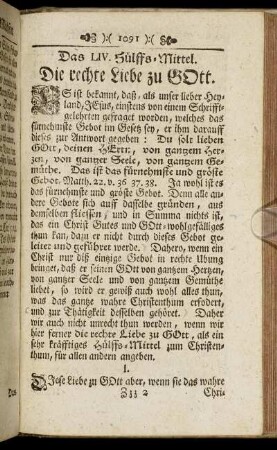 ):( 1091 ):(
Das LIV. Hülffs-Mittel.
Die rechte Liebe zu GOtt.
ES ist bekannt, daß, als unser lieber Hey-
land, JEsus, einstens von einem Schrifft-
gelehrten gefraget worden, welches das
fürnehmste Gebot im Gesetz sey, er ihm darauff
dieses zur Antwort gegeben: Du solt lieben
GOtt, deinen HErrn, von gantzem Her-
zen, von gantzer Seele, von gantzem Ge-
müthe. Das ist das fürnehmste und gröste
Gebot. Matth. 22. v. 36. 37. 38. Ja wohl ist es
das fürnehmste und gröste Gebot. Denn alle an-
dere Gebote sich auff dasselbe gründen, aus
demselben fliessen, und in Summa nichts ist,
das ein Christ Gutes und GOtt-wohlgefälliges
thun kan, dazu er nicht durch dieses Gebot ge-
leitet und geführet werde. Dahero, wenn ein
Christ nur diß eintzige Gebot in rechte Ubung
bringet, daß er seinen GOtt von gantzem Hertzen,
von gantzer Seele und von gantzem Gemüthe
liebet, so wird er gewiß auch wohl alles thun,
was das gantze wahre Christenthum erfodert,
und zur Thätigkeit desselben gehöret. Daher
wir auch nicht unrecht thun werden, wenn wir
hier ferner die rechte Liebe zu GOtt, als ein
sehr kräfftiges Hülffs-Mittel zum Christen-
thum, für allen andern angeben.
I.
DIese Liebe zu GOtt aber, wenn sie das wahre
Zzz 2 Chri-